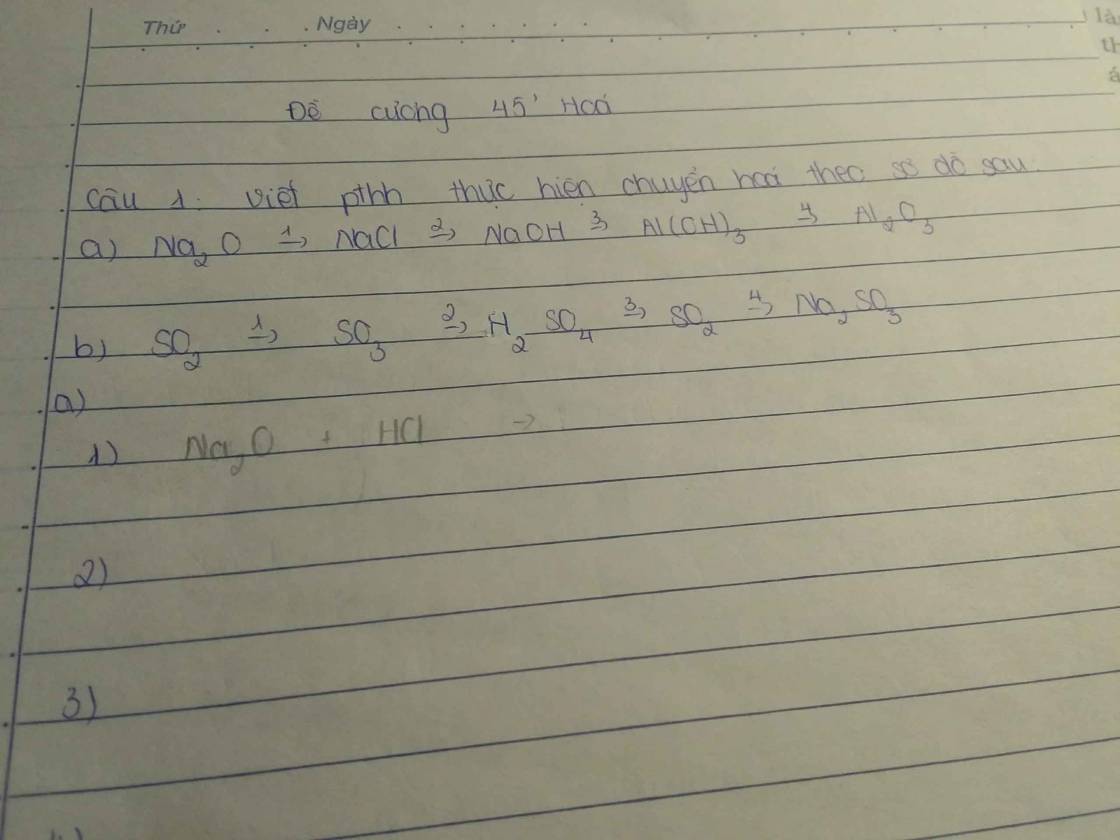 Thứ . . . Ngày . . . . . . .
là
th
á
Đề cương 45' Hoá
Câu 1: viết pthh thực hiện chuyển hoá theo sơ đồ sau.
a) Na₂O 1→ NaCl 2→ NaOH 3→ Al(OH)₃ 4→ Al₂O₃
b) SO₂ 1→ SO₃ 2→ H₂SO₄ 3→ SO₂ 4→ Na₂SO₃
a)
1) Na₂O + HCl →
2)
3)